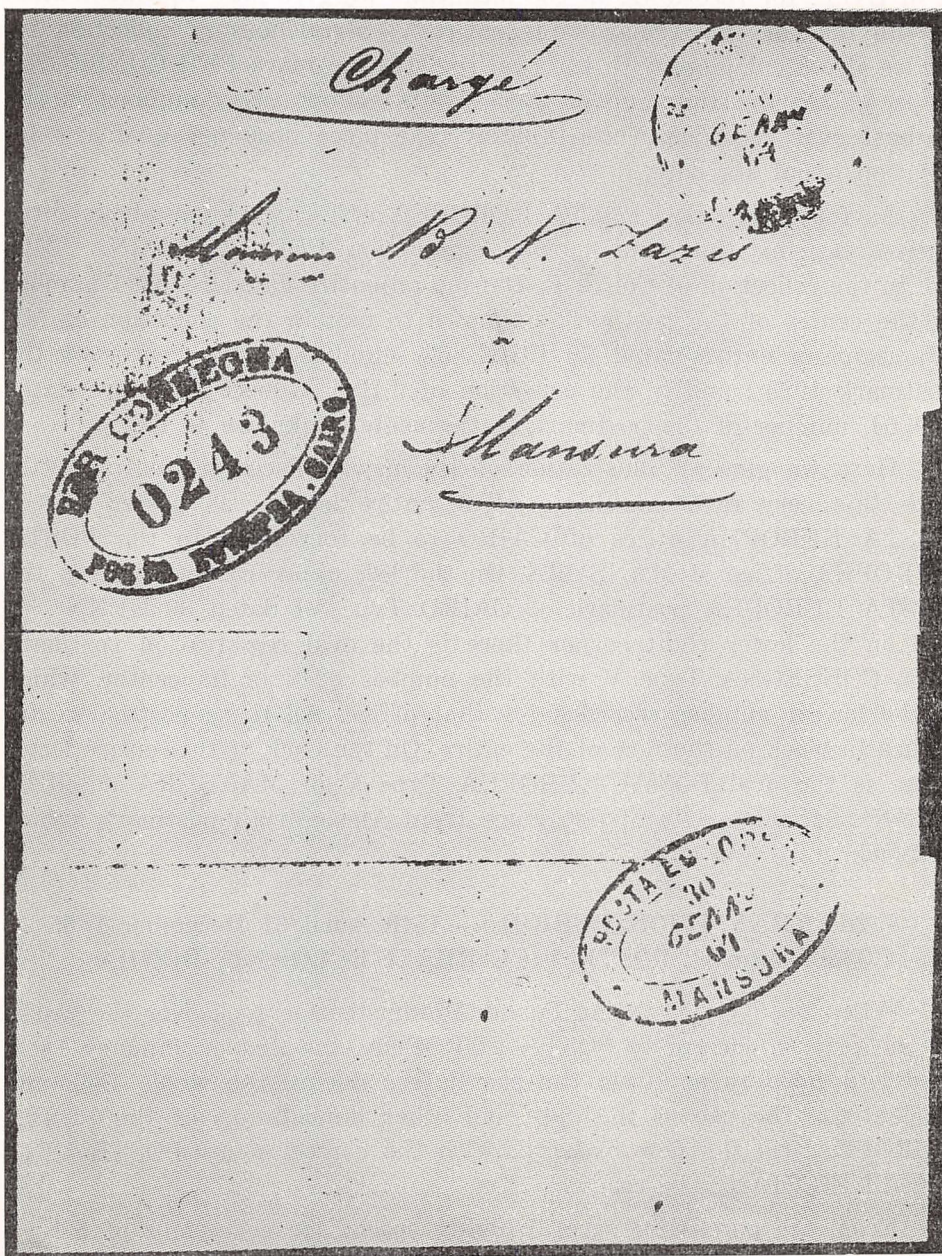 Chargé
GENN
Monsieur N. N. Zazis
Mansura
PER CONSEGNA
0243
POSTA EUROPEA. CAIRO
POSTA EUROPE
30
GENN
MANSURA